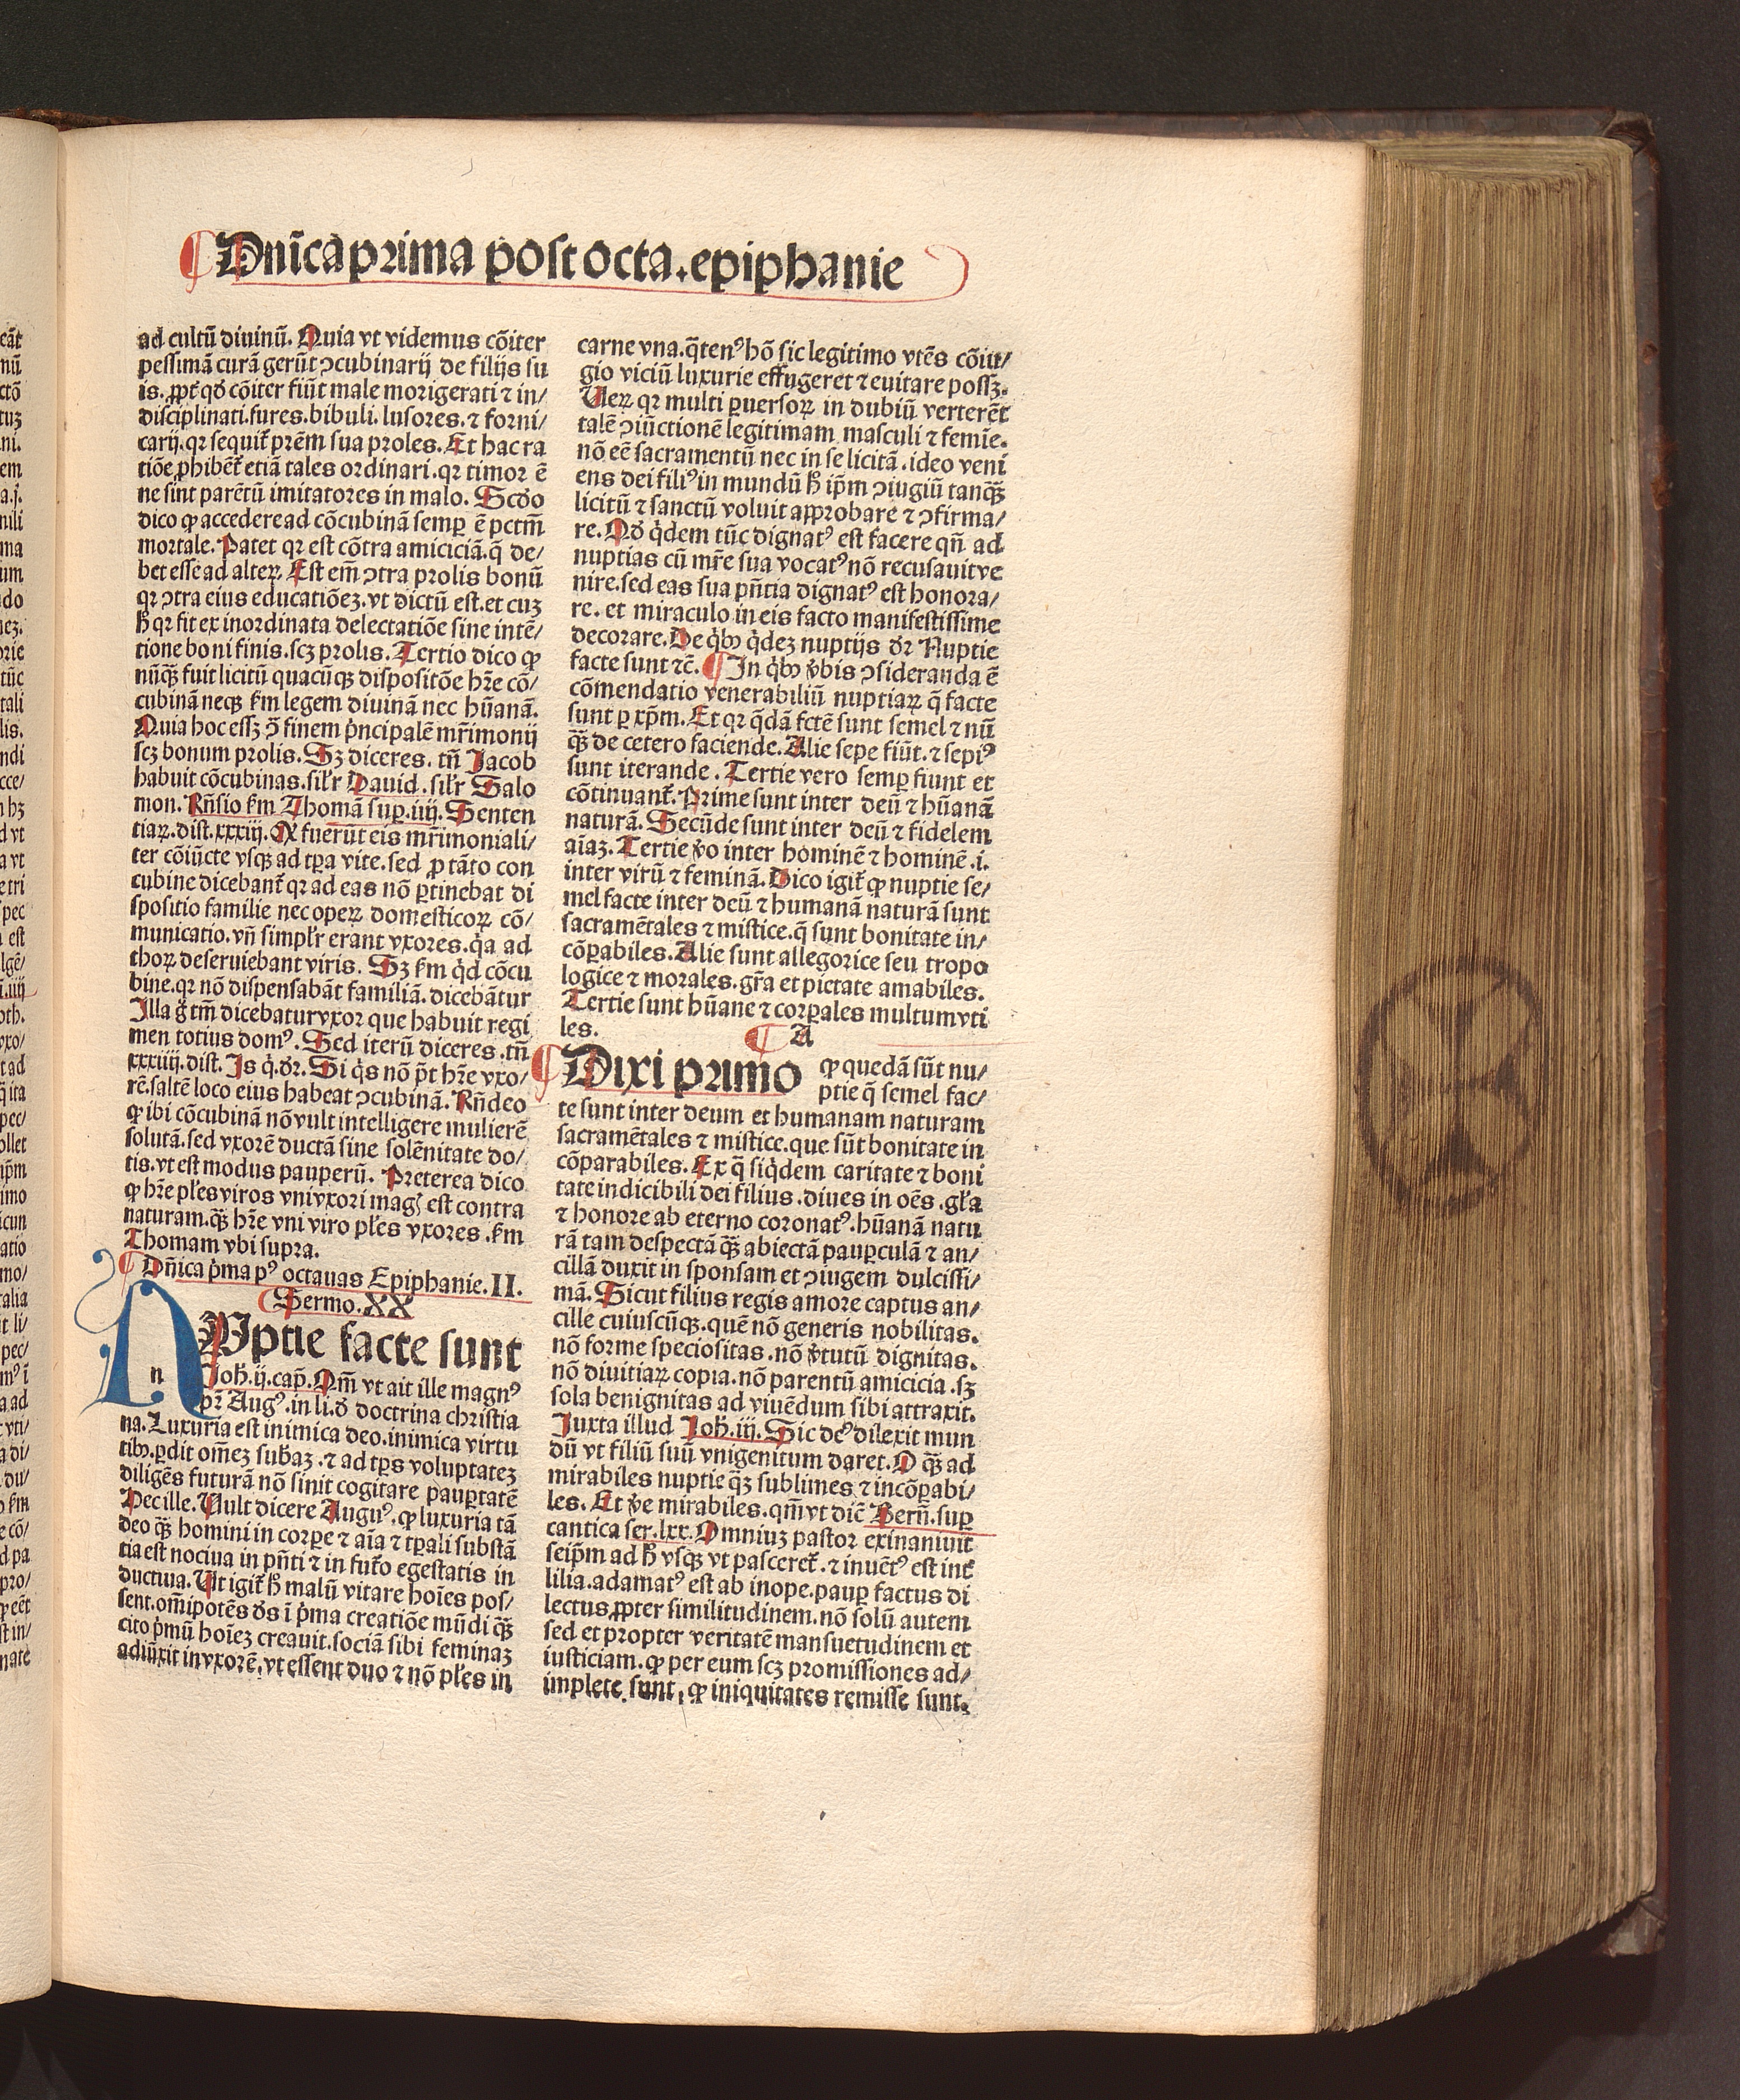 Dnīca prima post octa. epiphanie
ad cultū diuinū. Quia vt videmus cōiter
pessimā curā gerūt ↄcubinarij de filijs su
is. ꝓpt̄ qď cōiter fiūt male morigerati ⁊ in/
disciplinati. fures. bibuli. lusores. ⁊ forni/
carij. qꝛ sequit̄ pr̄em sua proles. Et hac ra
tiōe ꝓhibēt̄ etiā tales ordinari. qꝛ timor ē
ne sint parētū imitatores in malo. Scďo
dico ꝙ accedere ad cōcubinā semꝑ ē pctm̄
mortale. Patet qꝛ est cōtra amiciciā. q̄ de/
bet esse ad alteꝝ. Est em̄ ↄtra prolis bonū
qꝛ ↄtra eius educatiōeꝫ. vt dictū est. et cuꝫ
ħ qꝛ fit ex inordinata delectatiōe sine intē/
tione boni finis. scꝫ prolis. Tertio dico ꝙ
nūqꝫ̄ fuit licitū quacūqꝫ dispositōe hr̄e cō/
cubinā neqꝫ ẜm legem diuinā nec hūanā.
Quia hoc essꝫ ↄ̄ finem pͥncipalē mr̄imonij
scꝫ bonum prolis. Sꝫ diceres. tn̄ Jacob
habuit cōcubinas. sil'r Dauid. sil'r Salo
mon. Rn̄sio ẜm Thomā suꝑ. iiij. Senten
tiaꝝ. dist. xxxiij. Q fuerūt eis mr̄imoniali/
ter cōiūcte vsqꝫ ad tꝑa vite. sed ꝓ tāto con
cubine dicebant̄ qꝛ ad eas nō ꝑtinebat di
spositio familie nec opeꝝ domesticoꝝ cō/
municatio. vn̄ simpl'r erant vxores. qͥa ad
thoꝝ deseruiebant viris. Sꝫ ẜm qͥd cōcu
bine. qꝛ nō dispensabāt familiā. dicebātur
Illa g̊ tm̄ dicebatur vxor que habuit regi
men totius domꝰ. Sed iterū diceres. tn̄
xxxiiij. dist. Is qͥ. dꝛ̄. Si qͥs nō pōt hr̄e vxo/
rē. saltē loco eius habeat ↄcubinā. Rn̄deo
ꝙ ibi cōcubinā nō vult intelligere mulierē
solutā. sed vxorē ductā sine solēnitate do/
tis. vt est modus pauperū. Preterea dico
ꝙ hr̄e ples viros vni vxori mag̕ est contra
naturam. qꝫ̄ hr̄e vni viro ples vxores. ẜm
Thomam vbi supra.
Dn̄ica pͥma pꝰ octauas Epiphanie. II.
Sermo. XX
n Vptie facte sunt
Joh̄. ij. cap̄. Qm̄ vt ait ille magnꝰ
pr̄ Augꝰ. in li. ď doctrina christia
na. Luxuria est inimica deo. inimica virtu
tibꝫ. ꝑdit om̄eꝫ subaꝫ. ⁊ ad tꝑs voluptateꝫ
diligēs futurā nō sinit cogitare pauꝑtatē
Hec ille. Vult dicere Auguꝰ. ꝙ luxuria tā
deo qꝫ̄ homini in corꝑe ⁊ aīa ⁊ tꝑali substā
tia est nociua in pn̄ti ⁊ in futo̕ egestatis in
ductiua. Ut igit̄ ħ malū vitare hoīes pos/
sent. om̄ipotēs ds̄ ī pͥma creatiōe mūdi qꝫ̄
cito pͥmū hoīeꝫ creauit. sociā sibi feminaꝫ
adiūxit in vxorē. vt essent duo ⁊ nō ples in
carne vna. q̄tenꝰ hō sic legitimo vtēs cōiu/
gio viciū luxurie effugeret ⁊ euitare possꝫ.
Ueꝝ qꝛ multi ꝑuersoꝝ in dubiū verterēt
talē ↄiūctionē legitimam masculi ⁊ femīe.
nō eē sacramentū nec in se licitā. ideo veni
ens dei filiꝰ in mundū ħ ip̄m ↄiugiū tanqꝫ̄
licitū ⁊ sanctū voluit approbare ⁊ ↄfirma/
re. Qď qͥdem tūc dignatꝰ est facere qn̄ ad
nuptias cū mr̄e sua vocatꝰ nō recusauit ve
nire. sed eas sua pn̄tia dignatꝰ est honora/
re. et miraculo in eis facto manifestissime
decorare. De qͥbꝫ qͥdeꝫ nuptijs dꝛ̄ Nuptie
facte sunt ⁊c̄. In qͥbꝫ v̄bis ↄsideranda ē
cōmendatio venerabiliū nuptiaꝝ q̄ facte
sunt ꝑ xp̄m. Et qꝛ q̄dā fctē sunt semel ⁊ nū
qꝫ̄ de cetero faciende. Alie sepe fiūt. ⁊ sepiꝰ
sunt iterande. Tertie vero semꝑ fiunt et
cōtinuant̄. Prime sunt inter deū ⁊ hūanā
naturā. Secūde sunt inter deū ⁊ fidelem
aīaꝫ. Tertie v̄o inter hominē ⁊ hominē. i.
inter virū ⁊ feminā. Dico igit̄ ꝙ nuptie se/
mel facte inter deū ⁊ humanā naturā sunt
sacramētales ⁊ mistice. q̄ sunt bonitate in/
cōꝑabiles. Alie sunt allegorice seu tropo
logice ⁊ morales. gr̄a et pietate amabiles.
Tertie sunt hūane ⁊ corꝑales multum vti
les.
A
Dixi primo ꝙ quedā sūt nu/
ptie q̄ semel fac/
te sunt inter deum et humanam naturam
sacramētales ⁊ mistice. que sūt bonitate in
cōparabiles. Ex q̄ siqͥdem caritate ⁊ boni
tate indicibili dei filius. diues in oēs. gl'a
⁊ honore ab eterno coronatꝰ. hūanā natu
rā tam despectā qꝫ̄ abiectā pauꝑculā ⁊ an/
cillā duxit in sponsam et ↄiugem dulcissi/
mā. Sicut filius regis amore captus an/
cille cuiuscūqꝫ. quē nō generis nobilitas.
nō forme speciositas. nō v̄tutū dignitas.
nō diuitiaꝝ copia. nō parentū amicicia. sꝫ
sola benignitas ad viuēdum sibi attraxit.
Juxta illud Joh̄. iij. Sic deꝰ dilexit mun
dū vt filiū suū vnigenitum daret. O qꝫ̄ ad
mirabiles nuptie qꝫ̄ sublimes ⁊ incōꝑabi/
les. Et v̄e mirabiles. qm̄ vt dic̄ Bern̄. suꝑ
cantica ser. lxx. Omniuꝫ pastor exinaniuit
seip̄m ad ħ vsqꝫ vt pasceret̄. ⁊ inuētꝰ est int̄
lilia. adamatꝰ est ab inope. pauꝑ factus di
lectus ꝓpter similitudinem. nō solū autem
sed et propter veritatē mansuetudinem et
iusticiam. ꝙ per eum scꝫ promissiones ad/
implete sunt, ꝙ iniquitates remisse sunt.